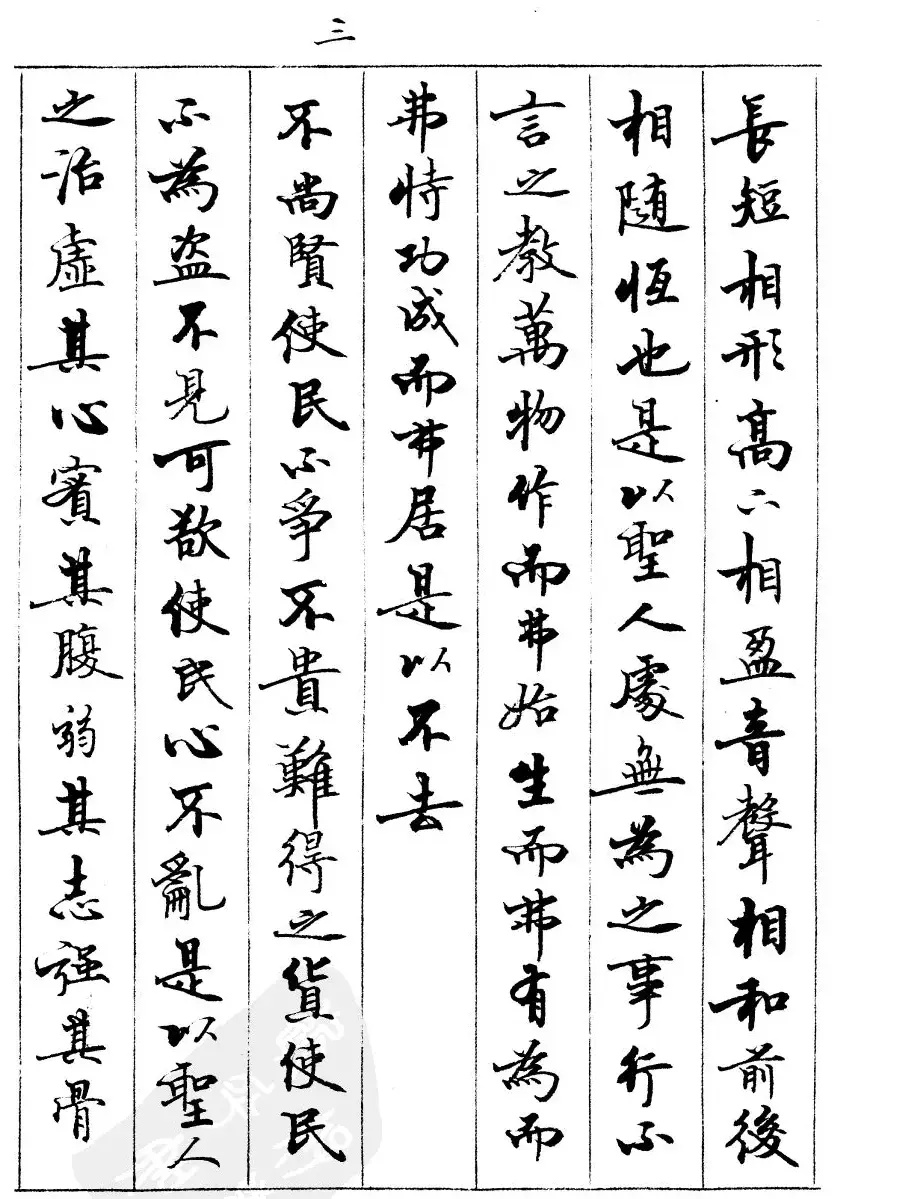 三
長短相形高下相盈音聲相和前後
相随恆也是以聖人處無為之事行不
言之教萬物作而弗始生而弗有為而
弗恃功成而弗居是以不去
不尚賢使民不爭不貴難得之貨使民
不為盗不見可欲使民心不亂是以聖人
之治虛其心實其腹弱其志強其骨